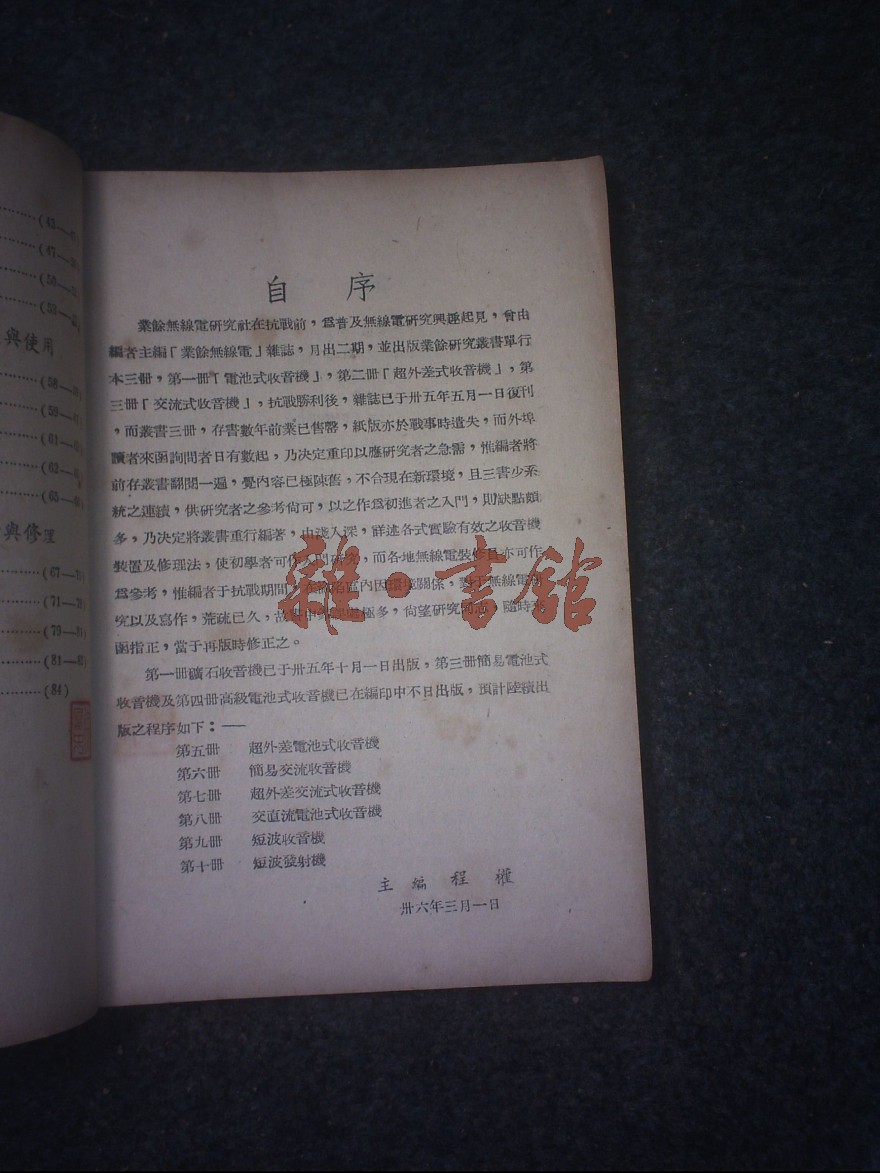 自序
業餘無線電研究社在抗戰前，爲普及無線電研究興趣起見，曾由
編者主編「業餘無線電」雜誌，月出二期，並出版業餘研究叢書單行
本三冊，第一冊「電池式收音機」，第二冊「超外差式收音機」，第
三冊「交流式收音機」，抗戰勝利後，雜誌已于卅五年五月一日復刊
，而叢書三冊，存書數年前業已售罄，紙版亦於戰事時遺失，而外埠
讀者來函詢問者日有數起，乃決定重印以應研究者之急需，惟編者將
前存叢書翻閱一遍，覺內容已極陳舊，不合現在新環境，且三書少系
統之連續，供研究者之參考尙可，以之作爲初進者之入門，則缺點頗
多，乃決定將叢書重行編著，由淺入深，詳述各式實驗有效之收音機
裝置及修理法，使初學者可作入門研究，而各地無線電裝修員亦可作
爲參考，惟編者于抗戰期間，在淪陷區內因環境關係，對于無線電研
究以及寫作，荒疏已久，故書中極多，尙望研究同志，隨時
函指正，當于再版時修正之。
第一冊礦石收音機已于卅五年十月一日出版，第三冊簡易電池式
收音機及第四冊高級電池式收音機已在編印中不日出版，預計陸續出
版之程序如下：——
第五冊　超外差電池式收音機
第六冊　簡易交流收音機
第七冊　超外差交流式收音機
第八冊　交直流電池式收音機
第九冊　短波收音機
第十冊　短波發射機
主編　程權
卅六年三月一日
與使用
與修理
(84)
雜·書館